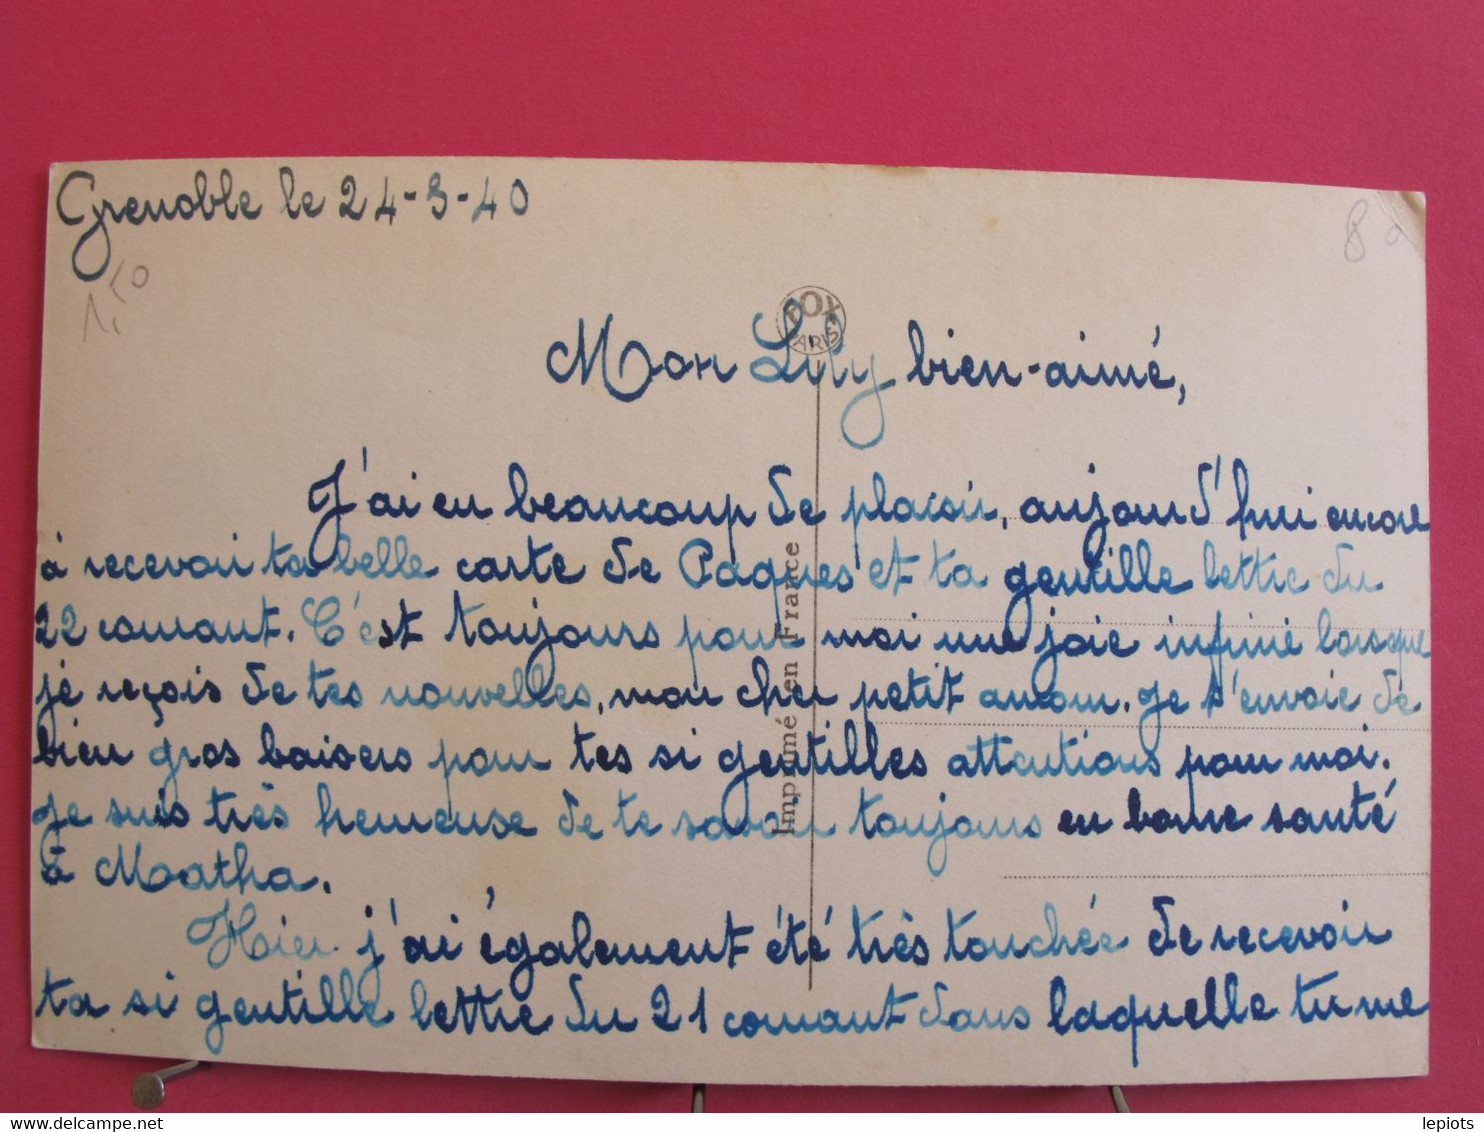 Grenoble le 24-3-40
1,50
8
FOX
PARIS
Mon Lily bien-aimé,
J'ai eu beaucoup de plaisir, aujourd'hui encore
à recevoir ta belle carte de Paques et ta gentille lettre du
22 courant. C'est toujours pour moi une joie infinie lorsque
je reçois de tes nouvelles, mon cher petit amour. Je t'envoie de
bien gros baisers pour tes si gentilles attentions pour moi.
Je suis très heureuse de te savoir toujours en bonne santé
à Matha.
Hier j'ai également été très touchée de recevoir
ta si gentille lettre du 21 courant dans laquelle tu me
Imprimé en France
lepiots